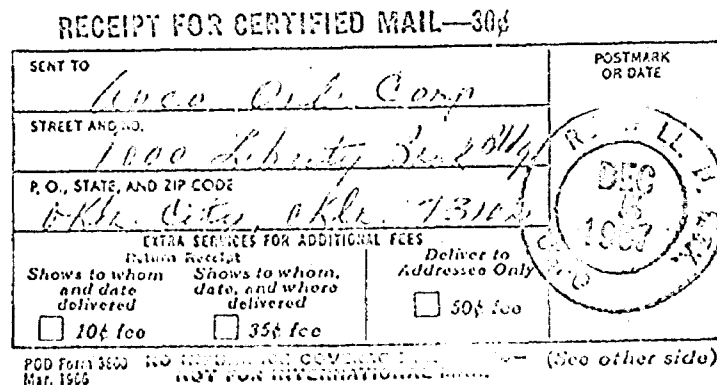 RECEIPT FOR CERTIFIED MAIL—30¢
SENT TO
POSTMARK OR DATE
Oil Corp
STREET AND NO.
1000 Liberty
P. O., STATE, AND ZIP CODE
Okla. City, Okla. 73102
DEC
1967
EXTRA SERVICES FOR ADDITIONAL FEES
Return Receipt
Shows to whom and date delivered
10¢ fee
Shows to whom, date, and where delivered
35¢ fee
Deliver to Addressee Only
50¢ fee
POD Form 3800
Mar. 1966
NOT FOR INTERNATIONAL MAIL
(See other side)